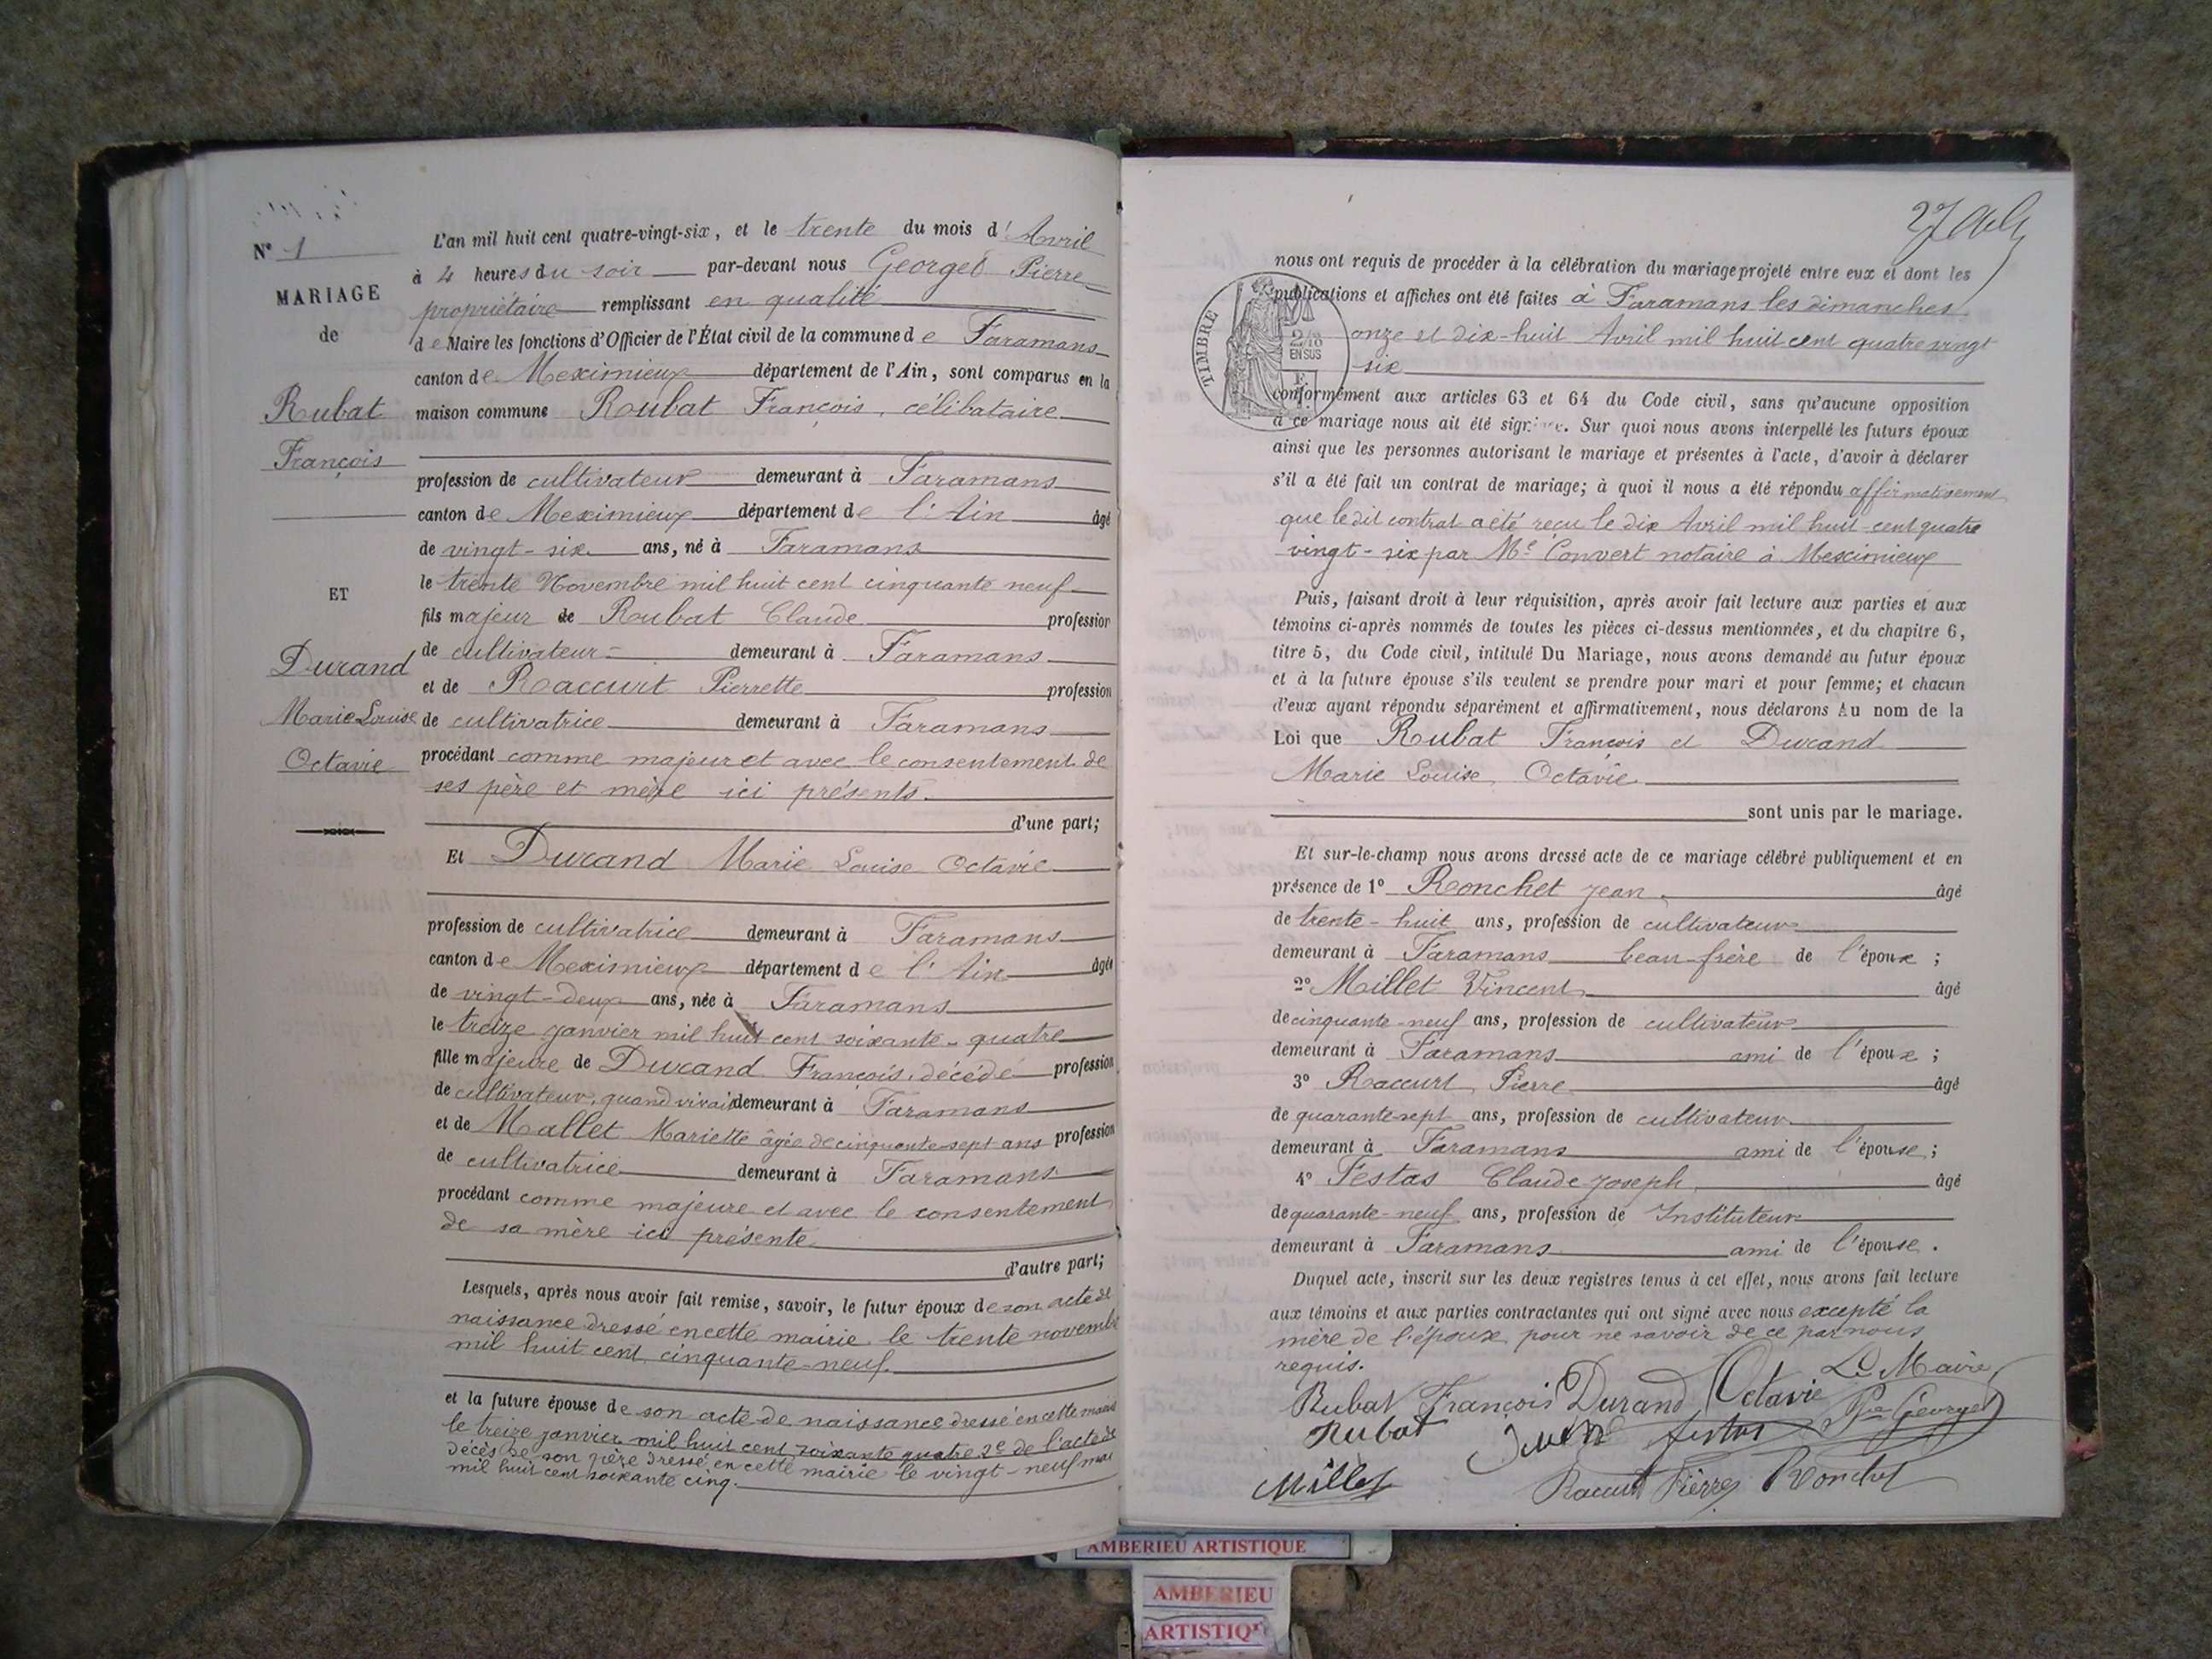 N° 1
MARIAGE
de
Rubat
François
ET
Durand
Marie Louise
Octavie
L'an mil huit cent quatre-vingt-six, et le trente du mois d'Avril
à 4 heures du soir par-devant nous Georges Pierre
propriétaire remplissant en qualité
de Maire les fonctions d'Officier de l'État civil de la commune de Faramans
canton de Meximieux département de l'Ain, sont comparus en la
maison commune Roubat François, célibataire
profession de cultivateur demeurant à Faramans
canton de Meximieux département de l'Ain âgé
de vingt-six ans, né à Faramans
le trente Novembre mil huit cent cinquante neuf
fils majeur de Roubat Claude profession
de cultivateur demeurant à Faramans
et de Raccurt Pierrette profession
de cultivatrice demeurant à Faramans
procédant comme majeur et avec le consentement de
ses père et mère ici présents.
d'une part;
Et Durand Marie Louise Octavie
profession de cultivatrice demeurant à Faramans
canton de Meximieux département de l'Ain âgée
de vingt-deux ans, née à Faramans
le treize janvier mil huit cent soixante-quatre
fille majeure de Durand François, décédé profession
de cultivateur, quand vivait demeurant à Faramans
et de Mallet Mariette âgée de cinquante-sept ans profession
de cultivatrice demeurant à Faramans
procédant comme majeure et avec le consentement
de sa mère ici présente.
d'autre part;
Lesquels, après nous avoir fait remise, savoir, le futur époux de son acte de
naissance dressé en cette mairie le trente novembre
mil huit cent cinquante-neuf.
et la future épouse de son acte de naissance dressé en cette mairie
le treize janvier mil huit cent soixante quatre 2e de l'acte de
décès de son père dressé en cette mairie le vingt-neuf mai
mil huit cent soixante cinq.
27
nous ont requis de procéder à la célébration du mariage projeté entre eux et dont les
publications et affiches ont été faites à Faramans les dimanches
onze et dix-huit Avril mil huit cent quatre vingt
six
TIMBRE
2/10
EN SUS
conformément aux articles 63 et 64 du Code civil, sans qu'aucune opposition
à ce mariage nous ait été signifiée. Sur quoi nous avons interpellé les futurs époux
ainsi que les personnes autorisant le mariage et présentes à l'acte, d'avoir à déclarer
s'il a été fait un contrat de mariage; à quoi il nous a été répondu affirmativement
que le dit contrat a été reçu le dix Avril mil huit-cent quatre
vingt-six par Me Convert notaire à Meximieux
Puis, faisant droit à leur réquisition, après avoir fait lecture aux parties et aux
témoins ci-après nommés de toutes les pièces ci-dessus mentionnées, et du chapitre 6,
titre 5, du Code civil, intitulé Du Mariage, nous avons demandé au futur époux
et à la future épouse s'ils veulent se prendre pour mari et pour femme; et chacun
d'eux ayant répondu séparément et affirmativement, nous déclarons Au nom de la
Loi que Rubat François et Durand
Marie Louise Octavie
sont unis par le mariage.
Et sur-le-champ nous avons dressé acte de ce mariage célébré publiquement et en
présence de 1° Ronchet Jean âgé
de trente-huit ans, profession de cultivateur
demeurant à Faramans beau-frère de l'époux ;
2° Millet Vincent âgé
de cinquante-neuf ans, profession de cultivateur
demeurant à Faramans ami de l'époux ;
3° Raccurt Pierre âgé
de quarante-sept ans, profession de cultivateur
demeurant à Faramans ami de l'épouse ;
4° Festas Claude Joseph âgé
de quarante-neuf ans, profession de Instituteur
demeurant à Faramans ami de l'épouse.
Duquel acte, inscrit sur les deux registres tenus à cet effet, nous avons fait lecture
aux témoins et aux parties contractantes qui ont signé avec nous excepté la
mère de l'époux pour ne savoir de ce par nous
requis.
Le Maire
Rubat François Durand Octavie Pre Georges
Rubat festas
Millet Raccurt Pierre Ronchet
AMBERIEU ARTISTIQUE
AMBERIEU
ARTISTIQ